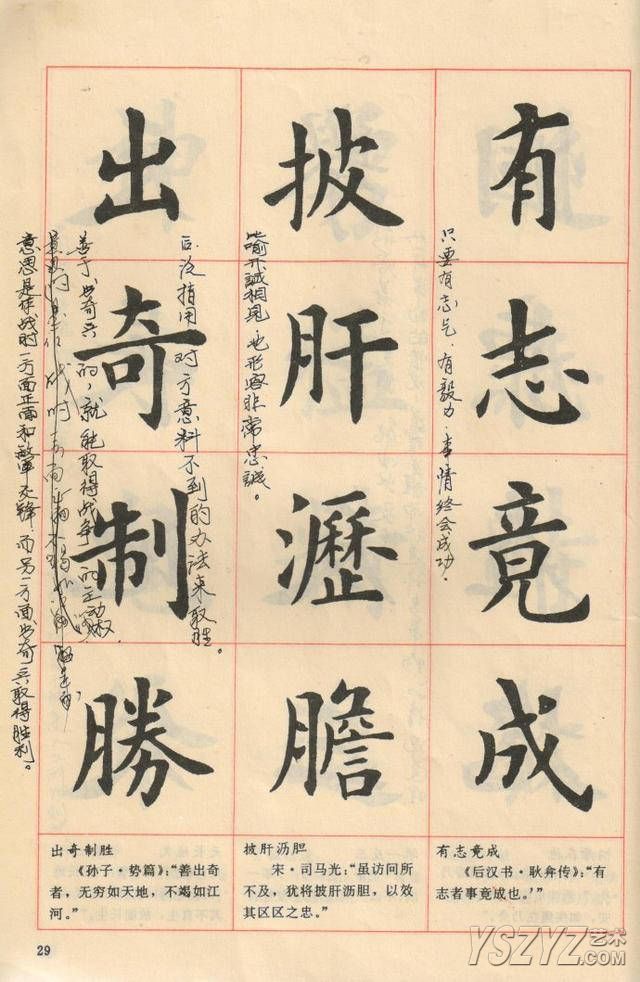 有志竟成
只要有志气、有毅力,事情终会成功.
披肝瀝膽
比喻开誠相見,也形容非常忠誠。
后泛指用对方意料不到的办法来取胜。
出奇制勝
善于出奇兵的,就能取得战争的主动权
意思是作战时一方面正面和敵交锋而另一方面出奇兵取得胜利。
有志竟成
《后汉书·耿弇传》:“有
志者事竟成也。’”
披肝沥胆
宋·司马光:“虽访问所
不及,犹将披肝沥胆,以效
其区区之忠。”
出奇制胜
《孙子·势篇》:“善出奇
者,无穷如天地,不竭如江
河。”
29
YSZYZ艺术
.com